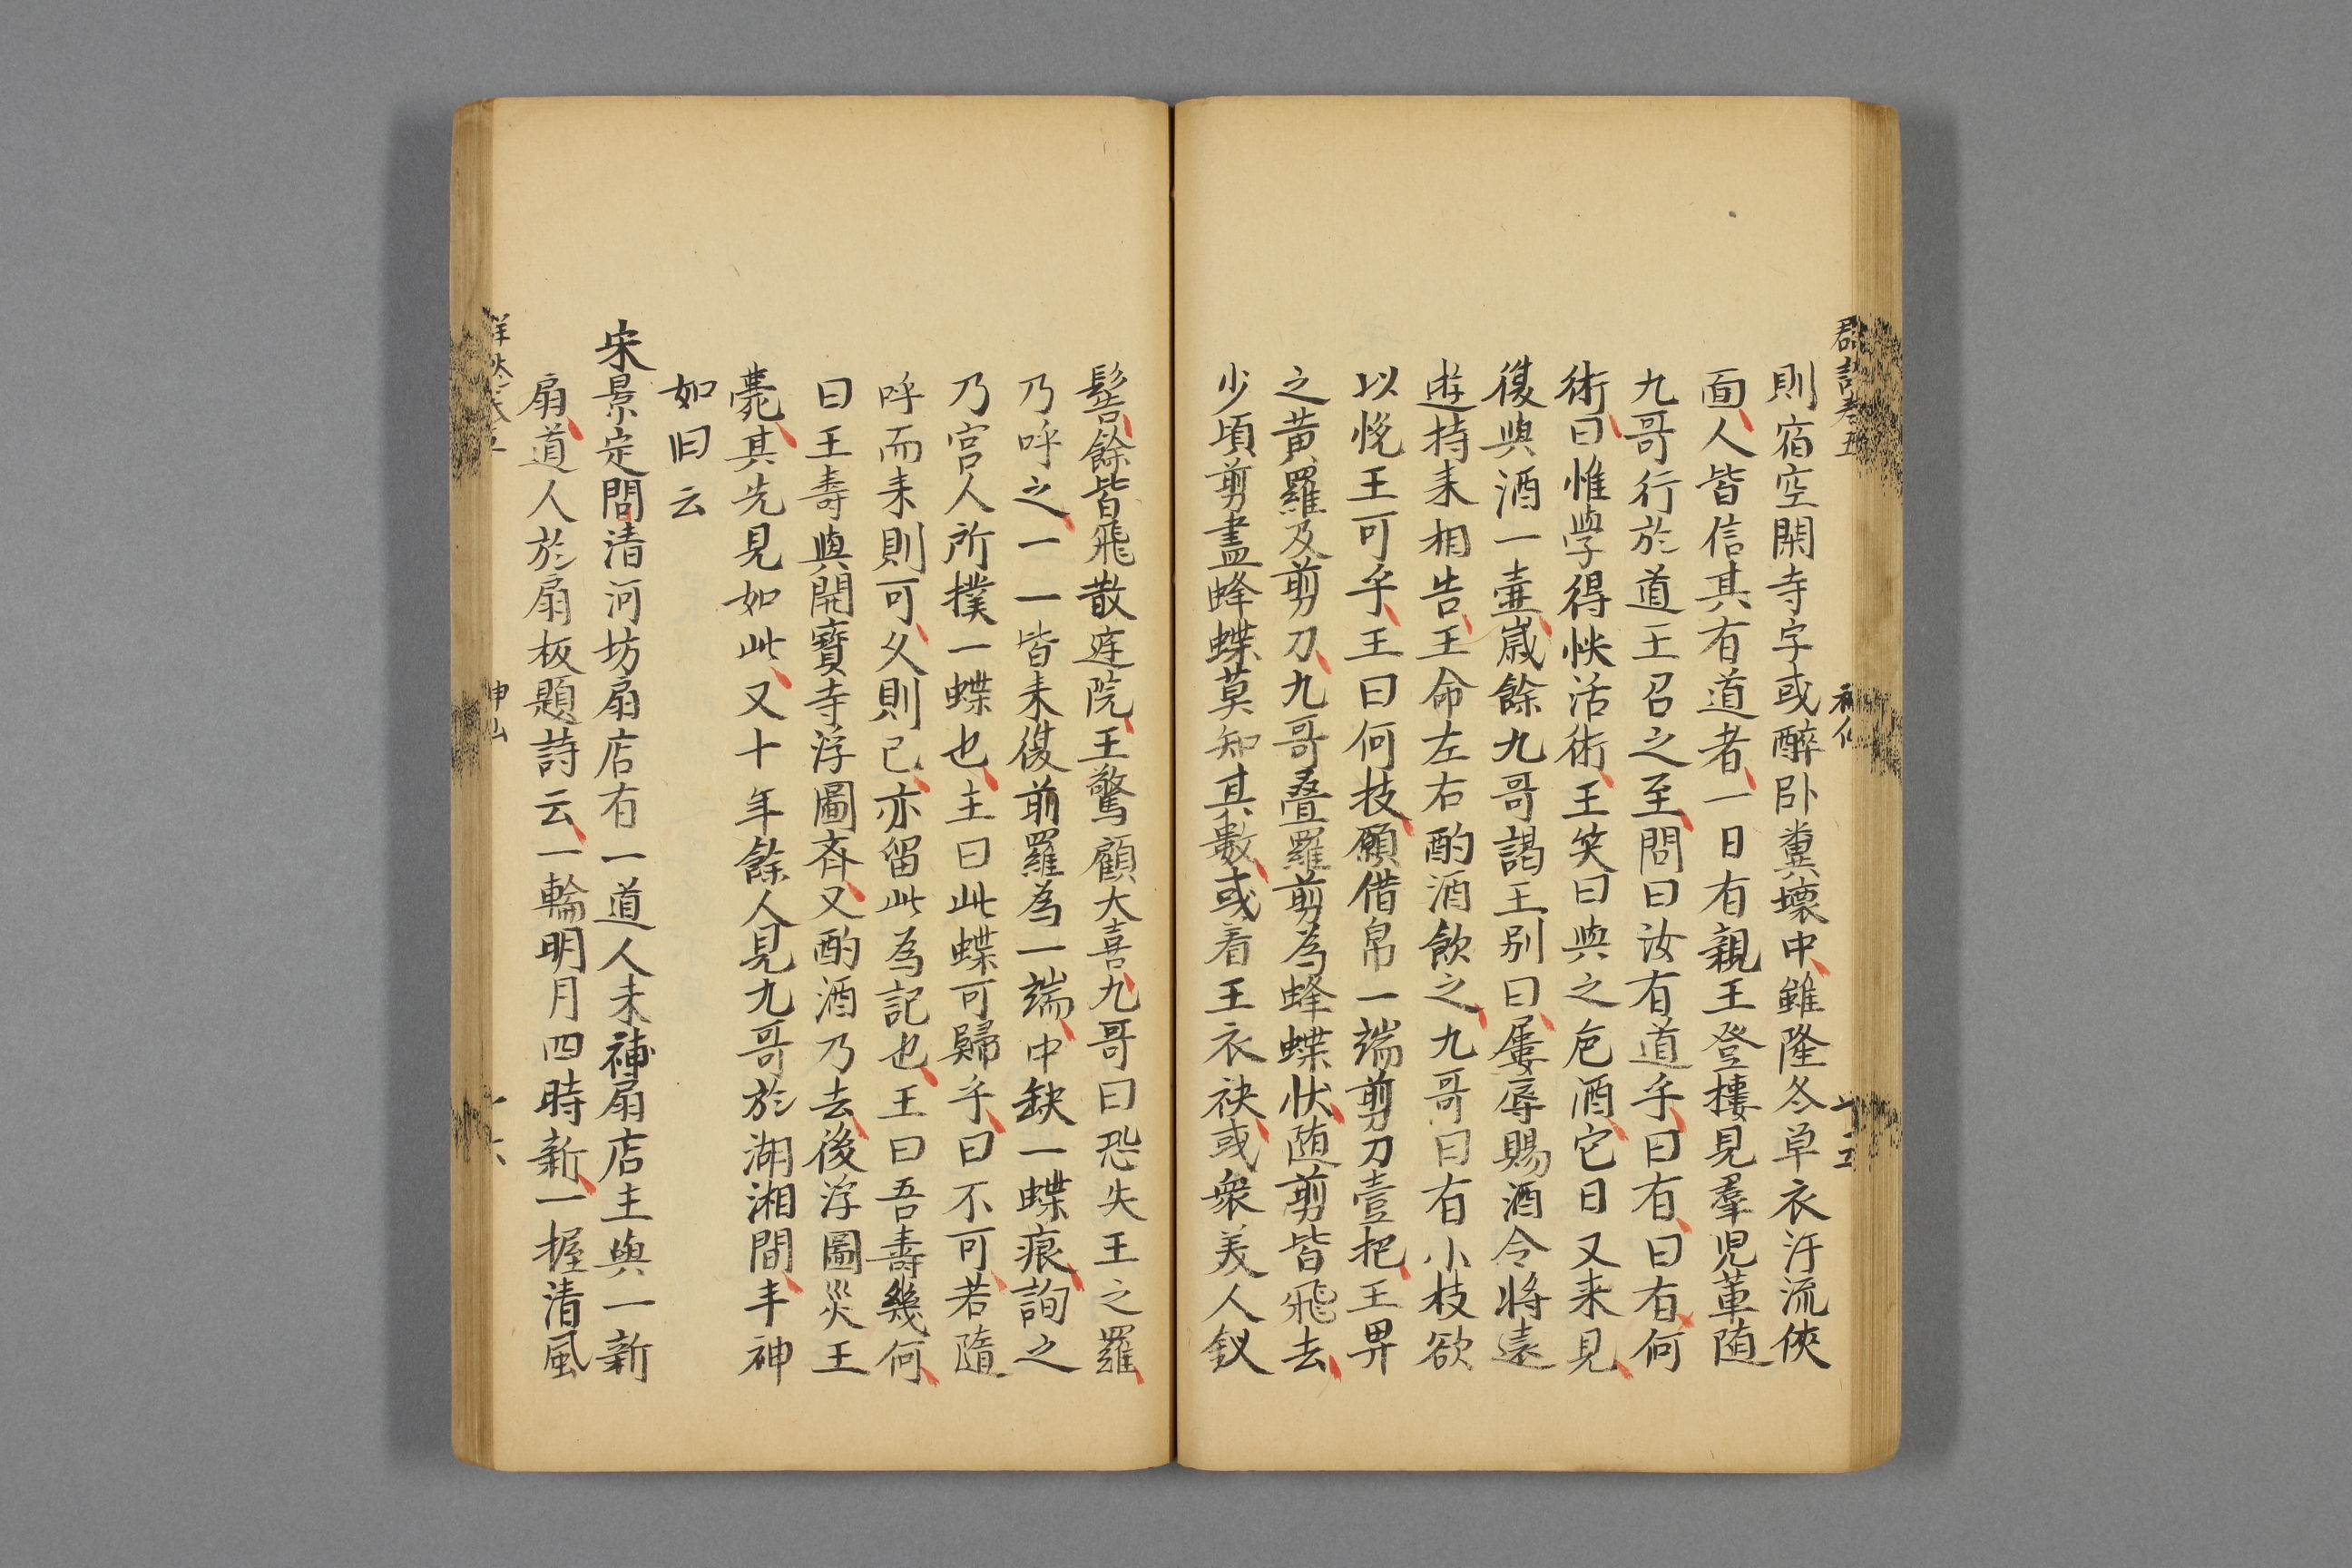 則宿空閑寺字或醉卧糞壞中雖隆冬草衣汗流俠
面人皆信其有道者一日有親王登樓見羣児軰随
九哥行於道王召之至問曰汝有道乎曰有曰有何
術曰惟學得快活術王笑曰與之巵酒它日又来見
復與酒一壷歲餘九哥謁王别曰屢辱賜酒令將遠
遊持来相告王命左右酌酒飲之九哥曰有小枝欲
以悅王可乎王曰何技願借帛一端剪刀壹把王畀
之黃羅及剪刀九哥叠羅剪為蜂蝶状随剪皆飛去
少頃剪盡蜂蝶莫知其數或着王衣袂或衆美人釵
髻餘皆飛散庭院王驚顧大喜九哥曰恐失王之羅
乃呼之一一皆来復前羅為一端中缺一蝶痕詢之
乃宫人所撲一蝶也主曰此蝶可歸乎曰不可若隨
呼而来則可久則已亦留此為記也王曰吾壽幾何
曰王壽與開寶寺浮圖齊又酌酒乃去後浮圖災王
薨其先見如此又十年餘人見九哥於湖湘間丰神
如旧云
宋景定間清河坊扇店有一道人未補扇店主與一新
扇道人於扇板題詩云一輪明月四時新一握清風